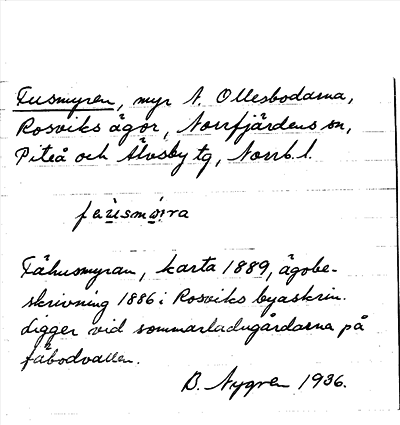 Fusmyren, myr N. Ollesbodarna,
Rosviks ägor, Norrfjärdens sn,
Piteå och Älvsby tg, Norrb. l.
fæ̀ùsmø̀ṃra
Fähusmyran, karta 1889, ägobe-
skrivning 1886 i Rosviks byaskrin.
Ligger vid sommarladugårdarna på
fäbodvallen.
B. Nygren 1936.